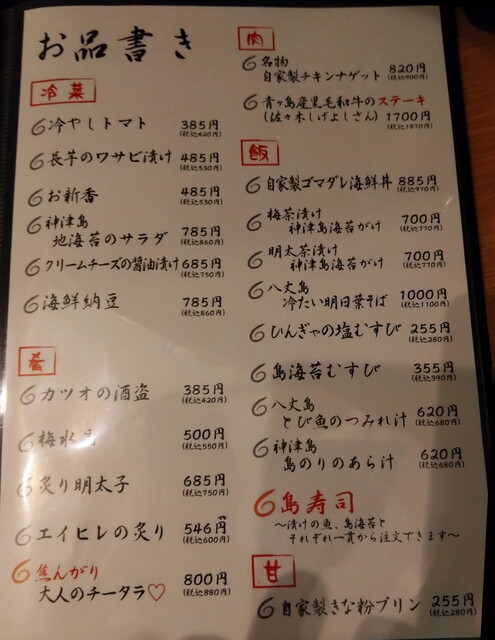 お品書き
冷菜
冷やしトマト 385円
(税込420円)
長芋のワサビ漬け 485円
(税込530円)
お新香 485円
(税込530円)
神津島
地海苔のサラダ 785円
(税込860円)
クリームチーズの醤油漬け 685円
(税込750円)
海鮮納豆 785円
(税込860円)
肴
カツオの酒盗 385円
(税込420円)
梅水 500円
(税込550円)
炙り明太子 685円
(税込750円)
エイヒレの炙り 546円
(税込600円)
焦んがり
大人のチータラ♡ 800円
(税込880円)
肉
名物
自家製チキンナゲット 820円
(税込900円)
青ヶ島産黒毛和牛のステーキ
(佐々木しげよしさん) 1700円
(税込1870円)
飯
自家製ゴマダレ海鮮丼 885円
(税込970円)
梅茶漬け
神津島海苔がけ 700円
(税込770円)
明太茶漬け
神津島海苔がけ 700円
(税込770円)
八丈島
冷たい明日葉そば 1000円
(税込1100円)
ひんぎゃの塩むすび 255円
(税込280円)
島海苔むすび 355円
(税込390円)
八丈島
とび魚のつみれ汁 620円
(税込680円)
神津島
島のりのあら汁 620円
(税込680円)
島寿司
～漬けの魚、島海苔と
それぞれ一貫から注文できます～
甘
自家製きな粉プリン 255円
(税込280円)